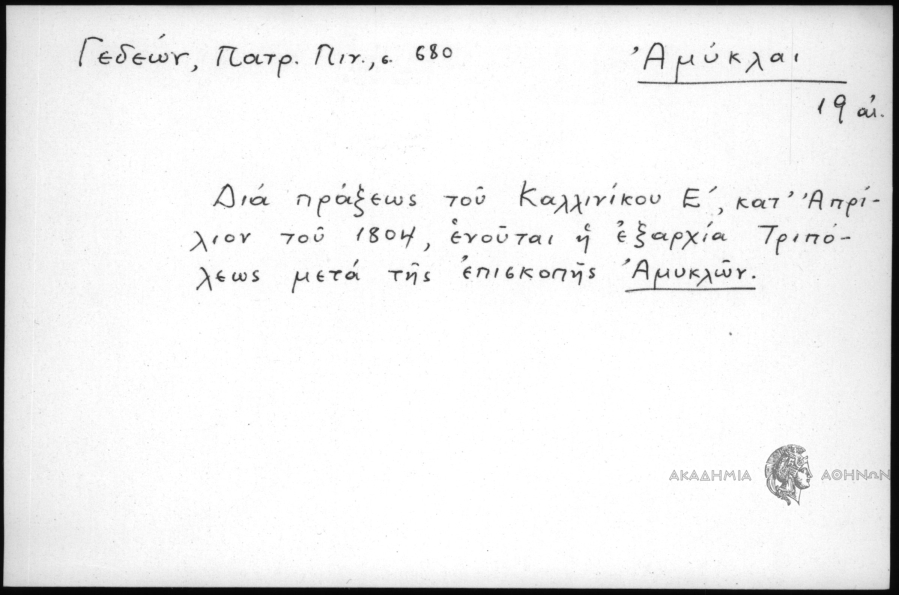 Γεδεών, Πατρ. Πιν., σ. 680
Ἀμύκλαι
19 αἰ.
Διά πράξεως τοῦ Καλλινίκου Ε΄, κατ' Ἀπρί-
λιον τοῦ 1804, ἑνοῦται ἡ ἐξαρχία Τριπό-
λεως μετά τῆς ἐπισκοπῆς Ἀμυκλῶν.
ΑΚΑΔΗΜΙΑ ΑΘΗΝΩΝ